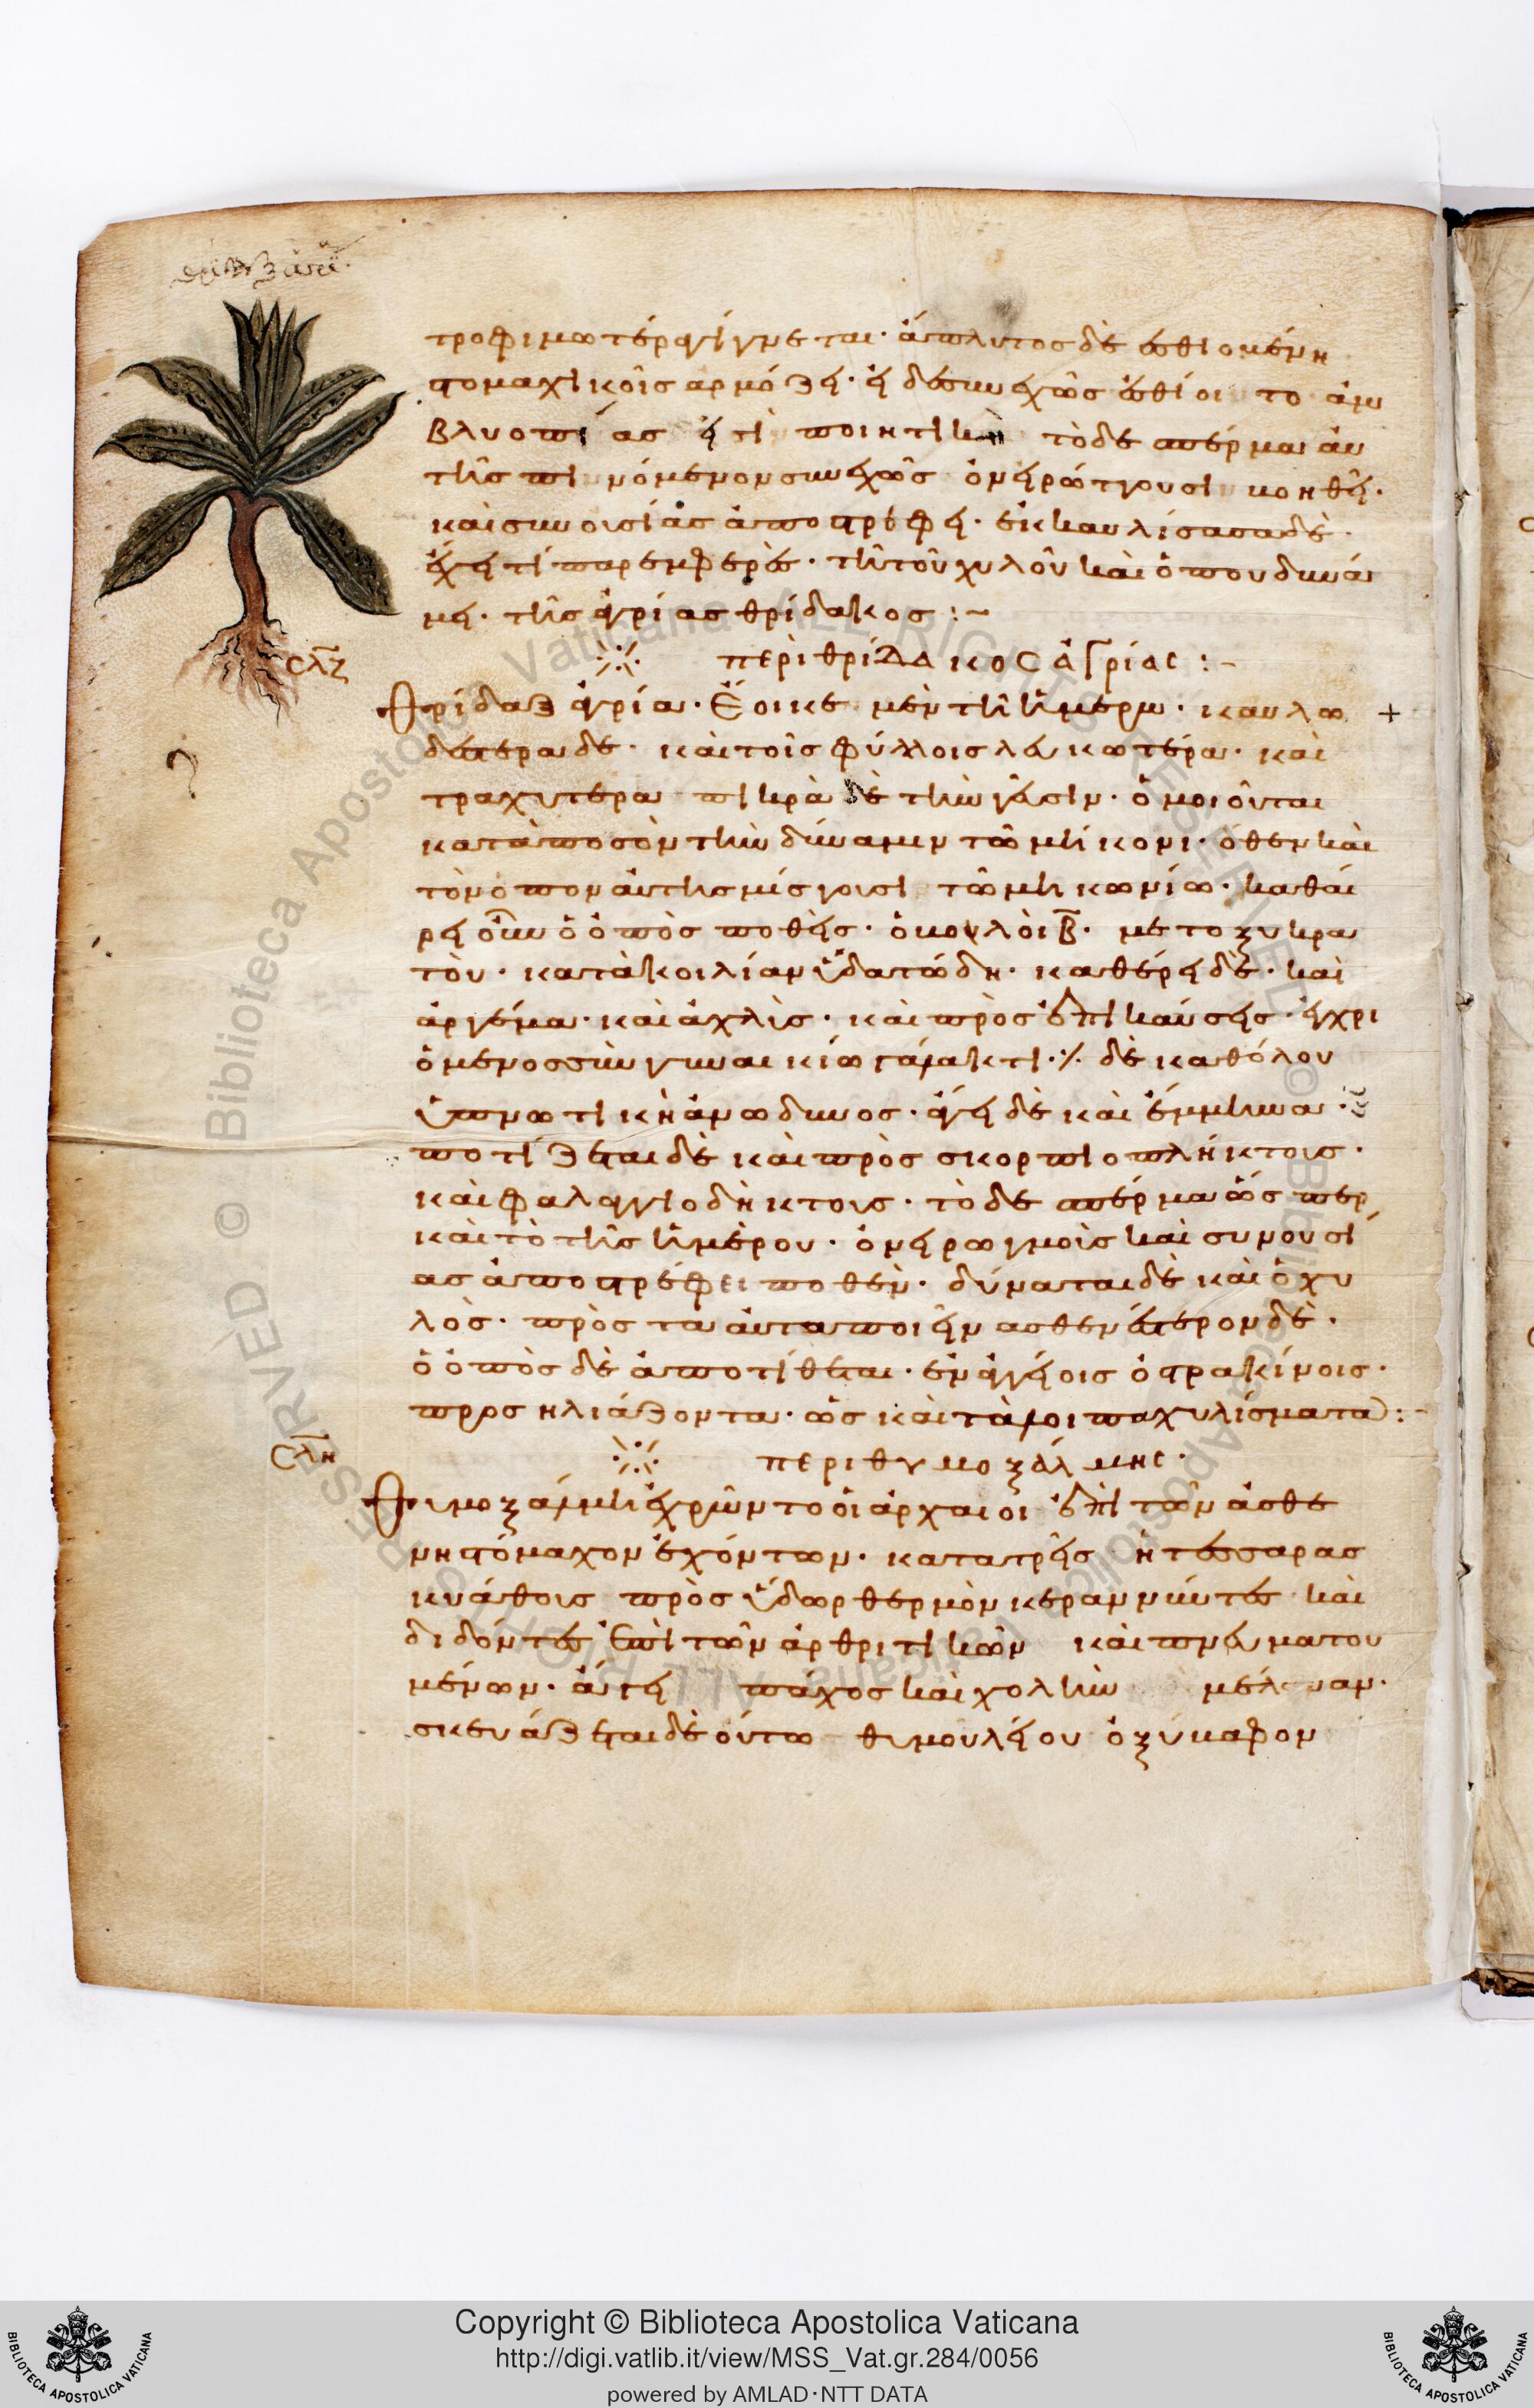 τροφιμωτέρα γίγνεται· ἄπλυτος δὲ ἐσθιομένη
στομαχικοῖς αρμόζει· εἰ δὲ συνεχῶς ἐσθίοιτο ἀμ
βλυοπίας ἐστὶ ποιητικὴ τὸ δὲ σπέρμα αὐ
τῆς πινόμενον συνεχῶς ὀνειρώττουσι βοηθεῖ·
καὶ συνουσίας ἀποστρέφει· ἐκκαυλίσασα δὲ
ἔχει τί παρεμφερὲς· τῆ τοῦ χυλοῦ καὶ ὀποῦ δυνά
μει· τῆς ἀγρίας θρίδακος :~
περὶ θρίδακος ἀγρίας :~
Θρίδαξ ἀγρία· ἔοικε μὲν τῆ ἡμέρω· καυλω
δέστερα δὲ· καὶ τοῖς φύλλοις λευκωτέρα· καὶ
τραχυτέρα πικρὰ δὲ τὴν γεῦσιν· ὁμοιοῦται
κατὰ ποσὸν τὴν δύναμιν τῶ μήκονι· ὅθεν καὶ
τὸν ὀπὸν αὐτῆς μίσγουσι τῶ μηκωνίω· καθαί
ρει οὖν ὁ ὀπὸς ποθεὶς· ὀβολοὶ β̄· μετ οξυκρα
του· κατὰ κοιλίαν ὑδατώδη· καθέρει δὲ· καὶ
ἄργεμα· καὶ ἀχλὺς· καὶ πρὸς ἐπικαύσεις· ἐγχρι
όμενος σὺν γυναικίω γάλακτι· δὲ καθόλου
ὑπνωτικὴ ἀνωδυνος· ἄγει δὲ καὶ ἔμμηνα·
ποτίζεται δὲ καὶ πρὸς σκορπιοπλήκτους·
καὶ φαλαγγιοδήκτους· τὸ δὲ σπέρμα ὥσπερ
καὶ τὸ τῆς ἡμέρου· ὀνειρωγμοὺς καὶ συνουσί
ας ἀποστρέφει ποθὲν· δύναται δὲ καὶ ὁ χυ
λὸς· πρὸς τα αὐτα ποιεῖν ασθενέστερον δὲ·
ὁ ὀπὸς δὲ ἀποτίθεται· ἐν ἀγγείοις ὀστρακίνοις·
προς ηλιάζοντα· ὡς καὶ τὰ λοιπα χυλίσματα :~
περι θυμοξάλμης·
Θυμοξάλμη ἐχρῶντο οἱ ἀρχαιοι ἐπὶ τῶν ἀσθε
νη στόμαχον ἐχόντων· κατα τρεῖς ἢ τέσσαρας
κυάθους πρὸς ὕδωρ θερμὸν κεραννύντες καὶ
διδόντες ἐπὶ τῶν ἀρθριτικῶν καὶ πνευματου
μένων· ἄγει πάχος καὶ χολὴν μέλαναν·
σκευάζεται δὲ οὕτω θυμου λείου ὀξύβαφον
σλζ
σλη